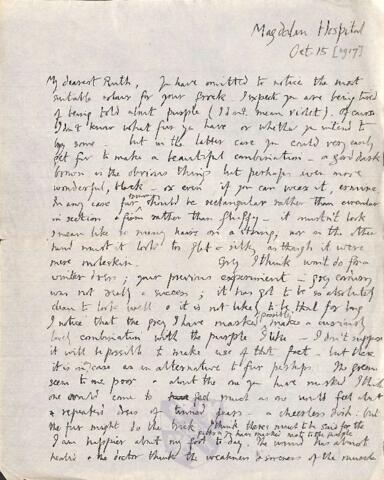 Magdalen Hospital
Oct. 15 [1917]
My dearest Ruth, You have omitted to notice the most
suitable colour for your frock. I expect you are being tired
of being told about purple (I do not mean violet). Of course
I don't know what fur you have or whether you intend to
buy some - but in the latter case you could very easily
get fur to make a beautiful combination - a good dark
brown is the obvious thing but perhaps even more
wonderful, black - or even if you can wear it, ermine
In any case fur should be rectangular rather than circular
in section & firm rather than fluffy - it mustn't look
I mean like so many hairs on a string, nor on the other
hand must it look so flat & silky as though it were
mere moleskin. Grey I think won't do for a
winter dress; your previous experiment - grey
was not really a success; it has got to be so absolutely
clean to look well & it is not likely to be that for long
I notice that the grey I have marked possibly makes a
combination with the purple I like - I don't suppose
it will be possible to make use of that fact - but there
it is in case as an alternative to fur perhaps. The greens
seem to me poor & about the one you have marked I think
one would come to feel much as one would feel about
a repeated dose of tinned pears - a cheerless dish: but
the fur might do the trick. I think there must be said for the
I am happier about my foot to-day. The wound has almost
healed & the doctor thinks the weakness & soreness of the muscles